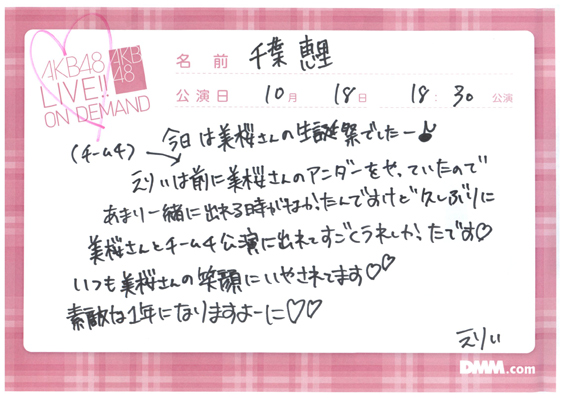 AKB48
LIVE!!
ON DEMAND
AKB
48
名前 千葉 恵里
公演日 10月 18日 18:30 公演
今日は美桜さんの生誕祭でしたー♪
(チーム4)
えりぃは前に美桜さんのアンダーをやっていたので
あまり一緒に出れる時がなかったんですけど久しぶりに
美桜さんとチーム4公演に出れてすごくうれしかったです♡
いつも美桜さんの笑顔にいやされてます♡♡
素敵な1年になりますよーに♡♡
えりぃ
DMM.com